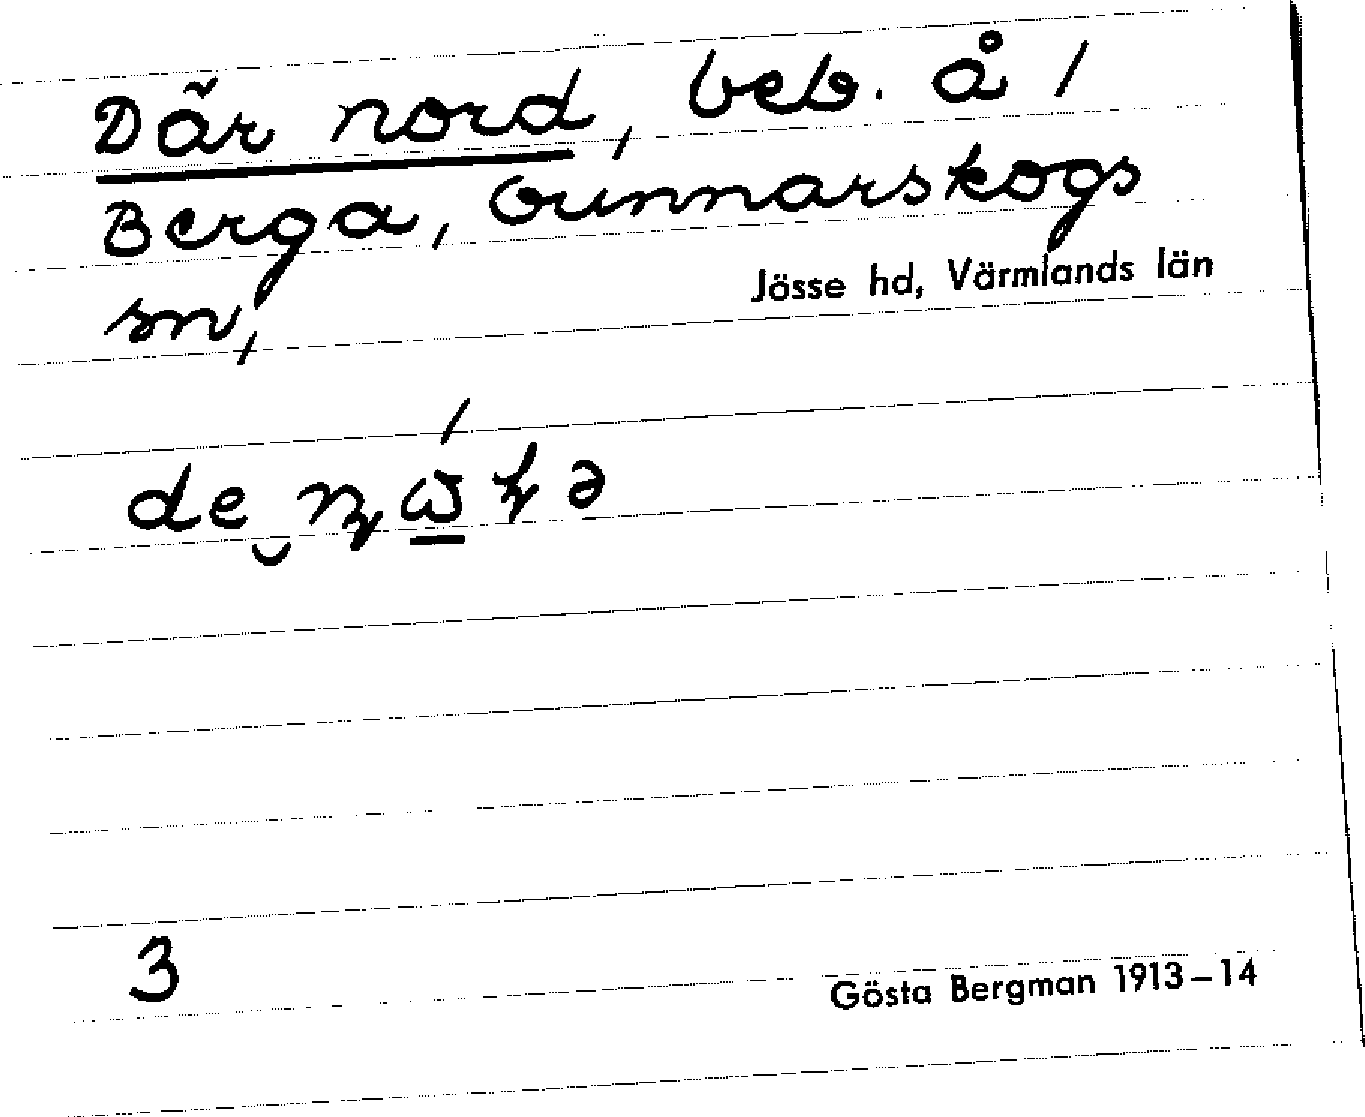 Där nord, beb. å /
Berga, Gunnarskogs
sn, Jösse hd, Värmlands län
3
Gösta Bergman 1913–14